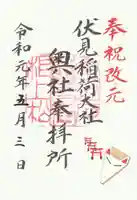 奉祝改元
伏見稲荷大社
奥社奉拝所
令和元年五月三日